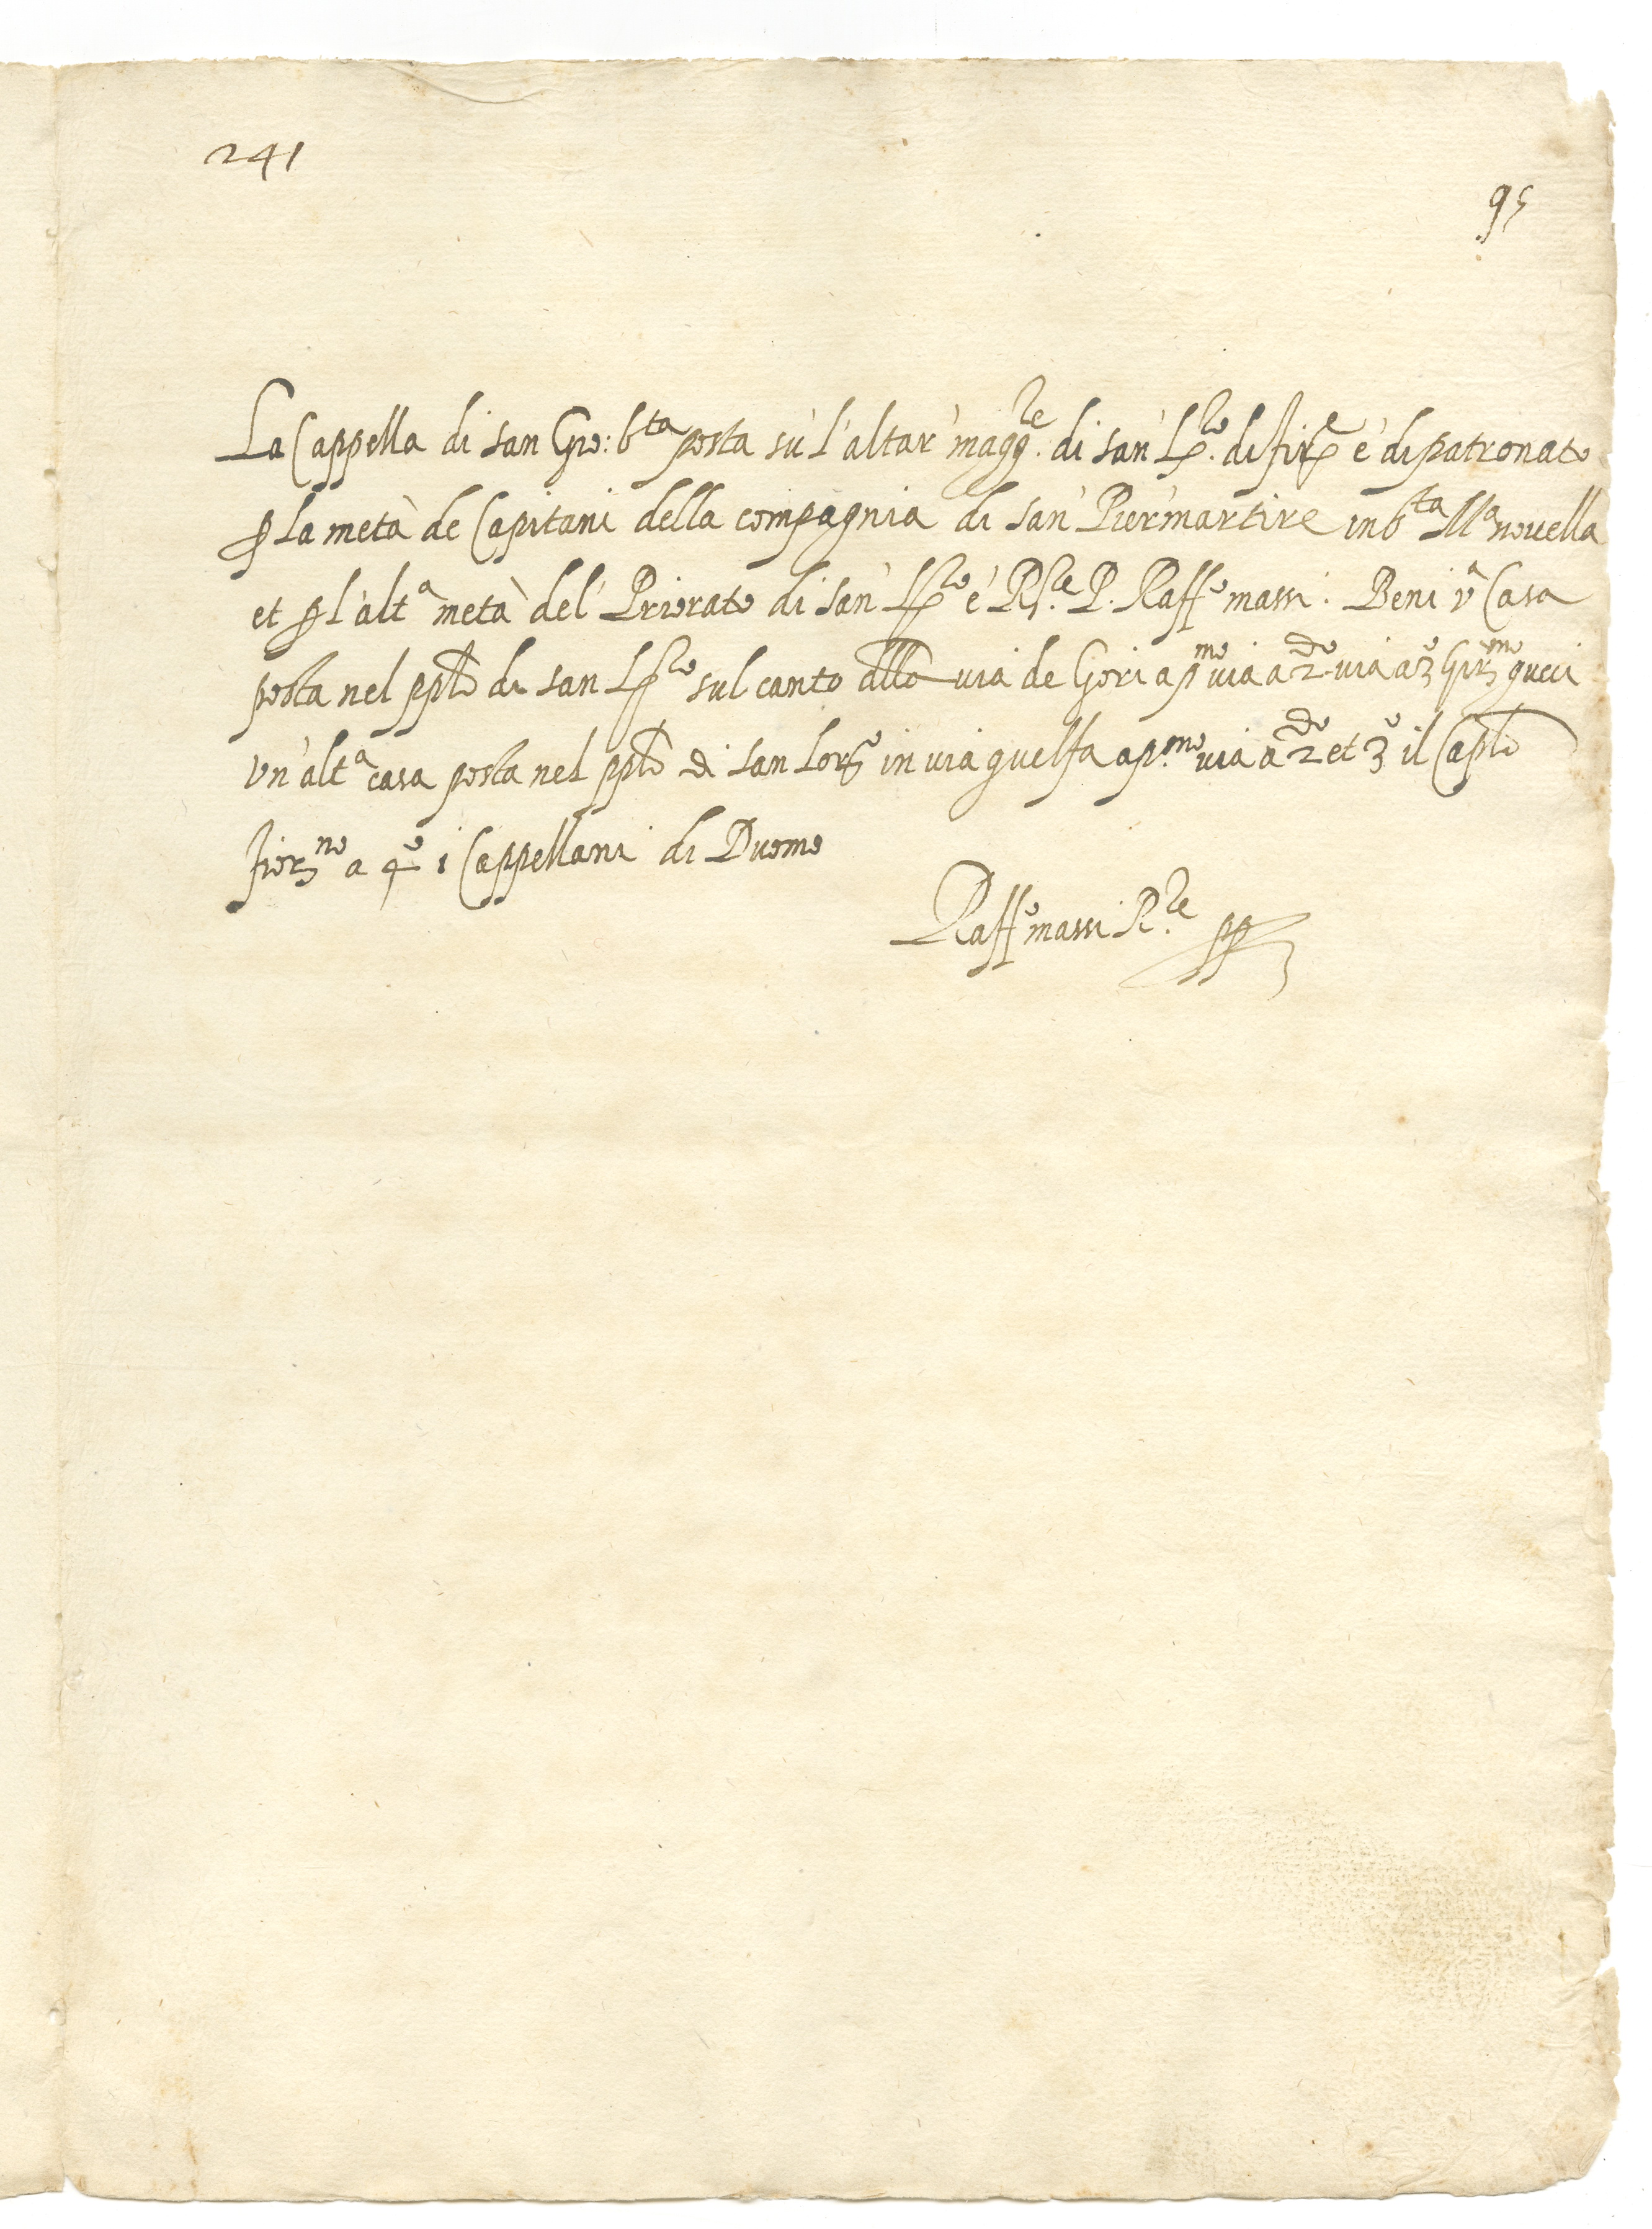 241
95
La Cappella di san Gio: b.ta posta sù l'altar' magg.re di san' L.zo di fir.e è di patronato
p la metà de Capitani della compagnia di san' Pier'martire in S.ta M.a novella
et p l'alt.a metà del' Priorato di san' L.zo è R.re P. Raff.o massi. Beni v.a Casa
posta nel pplo di san L.zo sul canto alla via de Gori a p.mo via a 2.do via a 3.o Gir.mo gucci
vn'alt.a casa posta nel pplo di san Lorz.o in via guelfa a p.mo via a 2.do et 3.o il Caplo
fior.no a 4.o i Cappellani di Duomo
Raff.o massi R.re pp